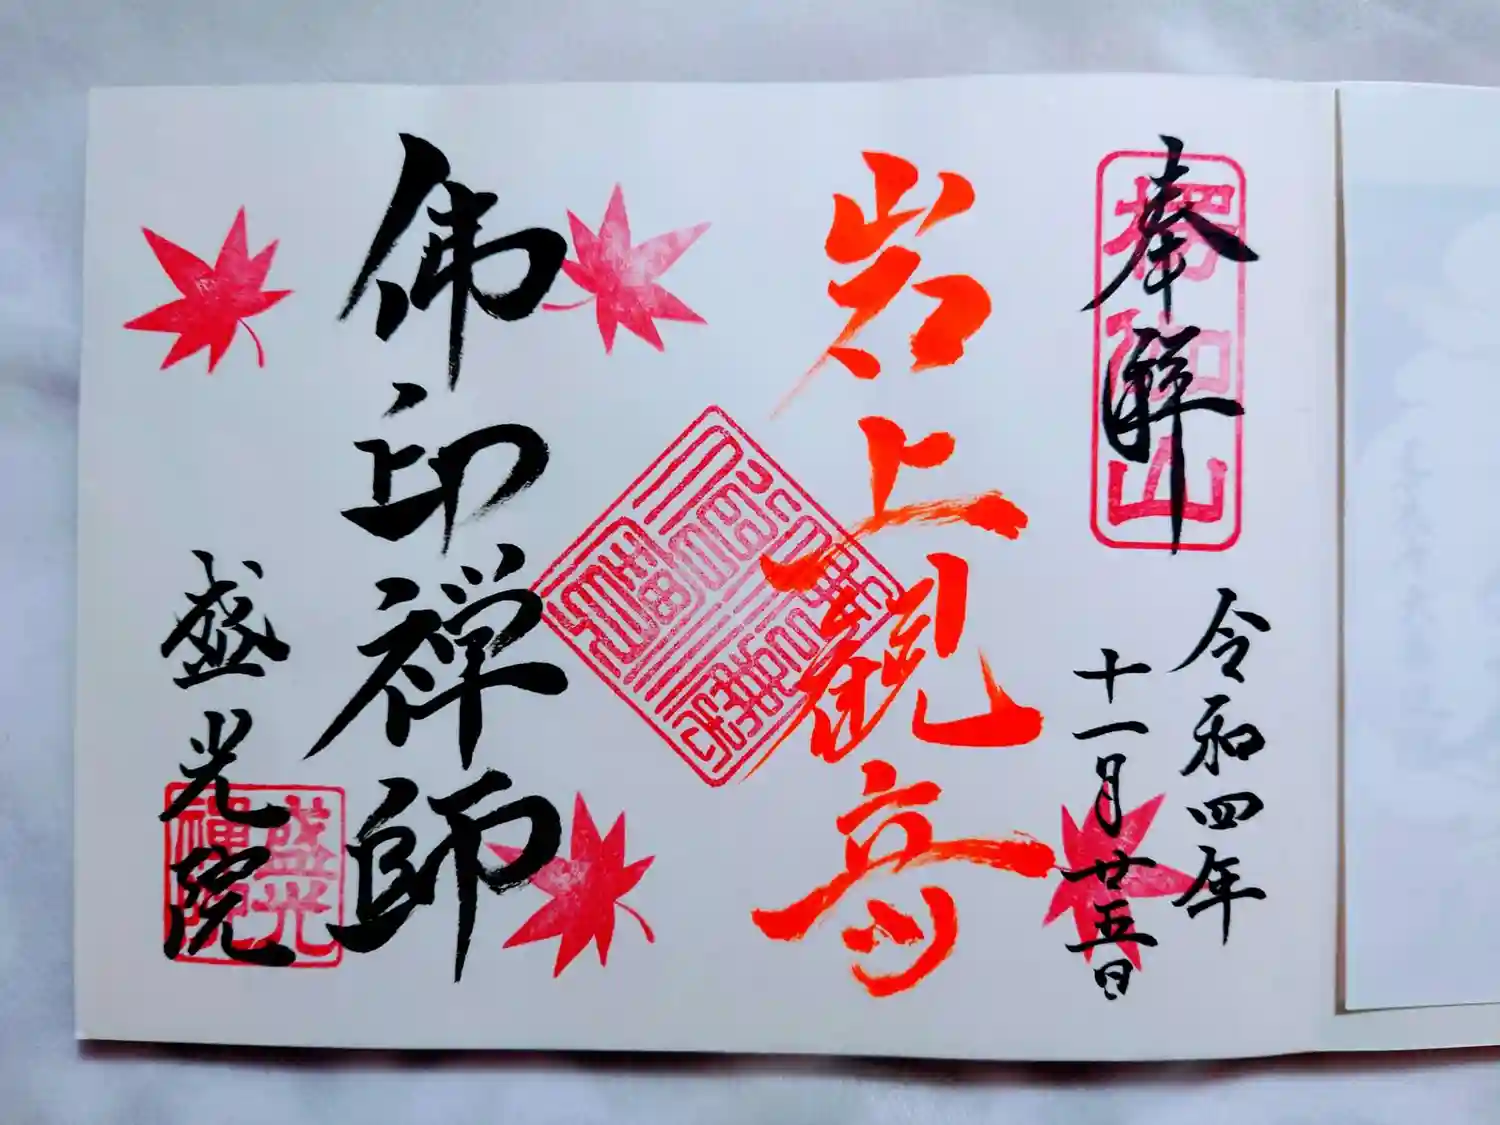 奉拜
楞伽山
令和四年
十一月廿五日
岩上観音
佛印禅師
盛光院
盛光
禅院